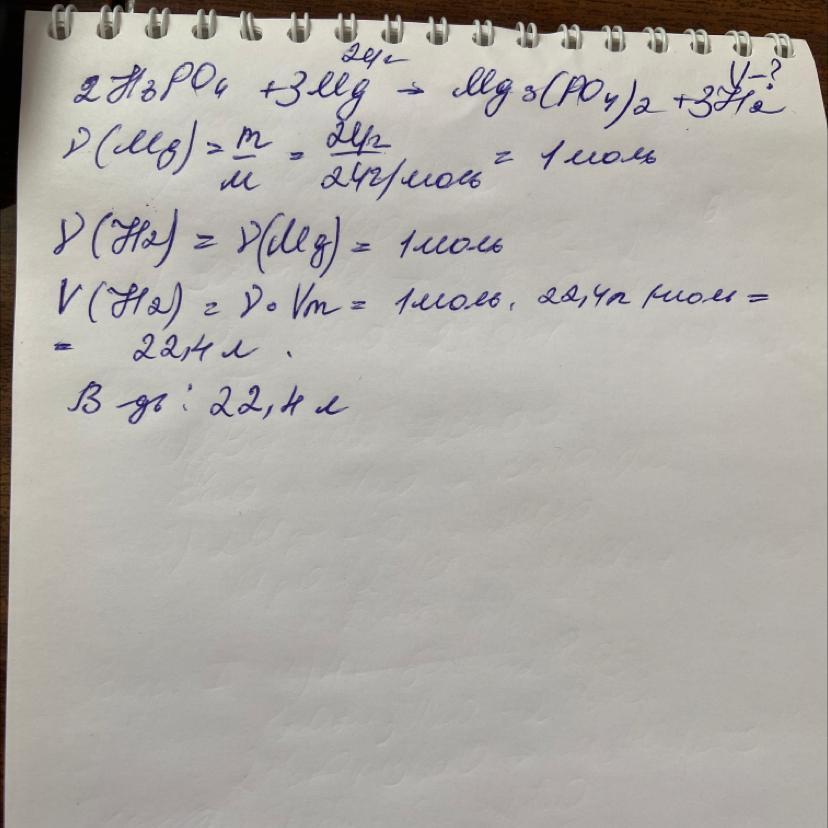 24г V-?
2H3PO4 + 3Mg → Mg3(PO4)2 + 3H2
ν(Mg) = m/M = 24г/24г/моль = 1 моль
ν(H2) = ν(Mg) = 1 моль
V(H2) = ν · Vm = 1 моль · 22,4 л/моль =
= 22,4 л.
В-дь: 22,4 л